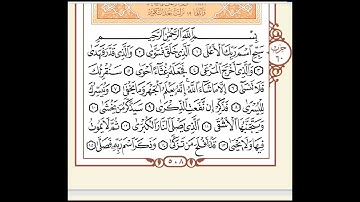 وآياتها ١٩ نزلت بعد التكوير
بِسْمِ اللَّهِ الرَّحْمَٰنِ الرَّحِيمِ
حزب
٦٠
سَبِّحِ اسْمَ رَبِّكَ الْأَعْلَى الَّذِي خَلَقَ فَسَوَّىٰ وَالَّذِي قَدَّرَ فَهَدَىٰ
وَالَّذِي أَخْرَجَ الْمَرْعَىٰ فَجَعَلَهُ غُثَاءً أَحْوَىٰ سَنُقْرِئُكَ
فَلَا تَنسَىٰ إِلَّا مَا شَاءَ اللَّهُ إِنَّهُ يَعْلَمُ الْجَهْرَ وَمَا يَخْفَىٰ وَنُيَسِّرُكَ
لِلْيُسْرَىٰ فَذَكِّرْ إِن نَّفَعَتِ الذِّكْرَىٰ سَيَذَّكَّرُ مَن يَخْشَىٰ
وَيَتَجَنَّبُهَا الْأَشْقَى الَّذِي يَصْلَى النَّارَ الْكُبْرَىٰ ثُمَّ لَا يَمُوتُ
فِيهَا وَلَا يَحْيَىٰ قَدْ أَفْلَحَ مَن تَزَكَّىٰ وَذَكَرَ اسْمَ رَبِّهِ فَصَلَّىٰ
٥٠٨